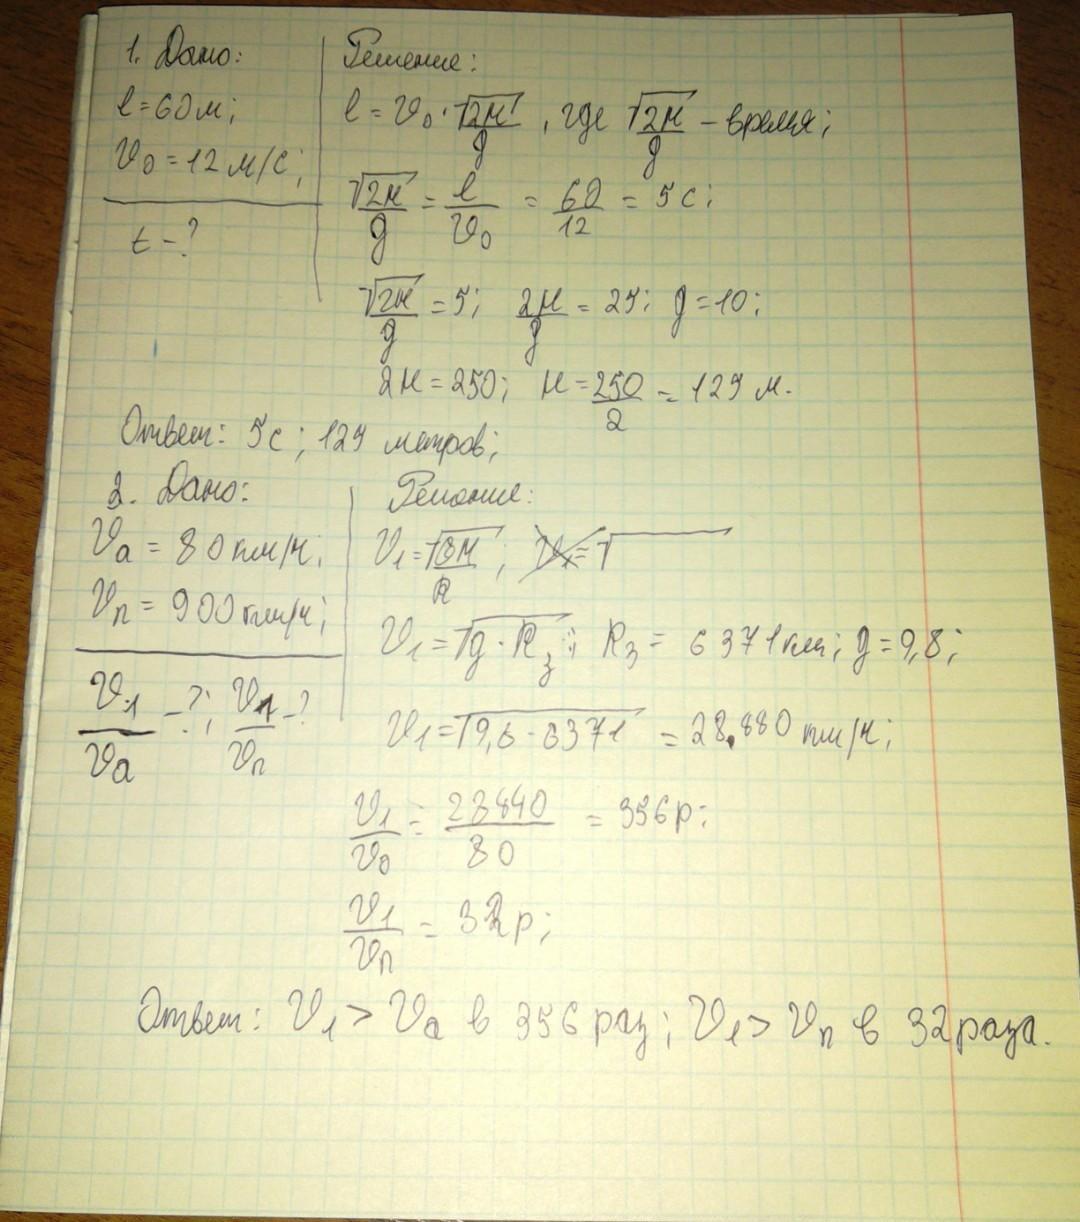 1. Дано:
l=60м;
V₀=12 м/с;
t-?
Решение:
l=V₀·√2H/g, где √2H/g - время;
√2H/g = l/V₀ = 60/12 = 5 с;
√2H/g = 5; 2H/g = 25; g=10;
2H=250; H=250/2 = 125 м.
Ответ: 5с; 125 метров;
2. Дано:
Vа = 80 км/ч;
Vп = 900 км/ч;
V₁/Vа -?; V₁/Vп -?
Решение:
V₁=√GM/R;
V₁=√g·Rз; Rз = 6371км; g=9,8;
V₁=√9,8·6371 = 28.880 км/ч;
V₁/V₀ = 28440/80 = 356р;
V₁/Vп = 32р;
Ответ: V₁>Vа в 356 раз; V₁>Vп в 32 раза.